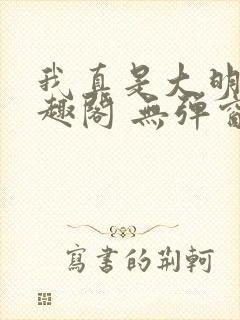 我真是大明
趣閣 無彈窗
寫書的荊軻